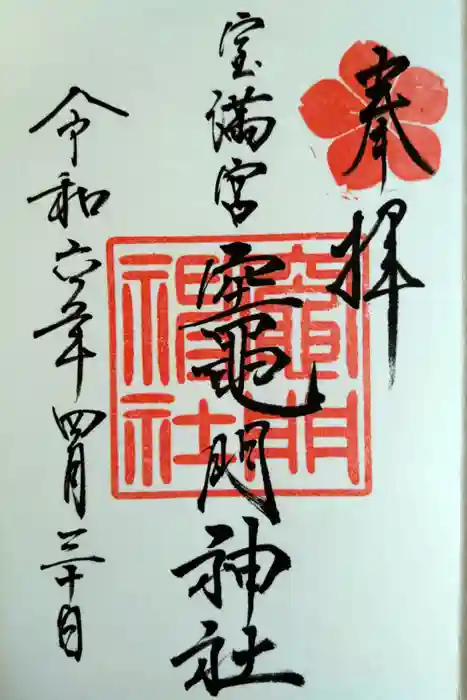 奉拝
宝満宮 竈門神社
竈門
神社
令和六年四月三十日